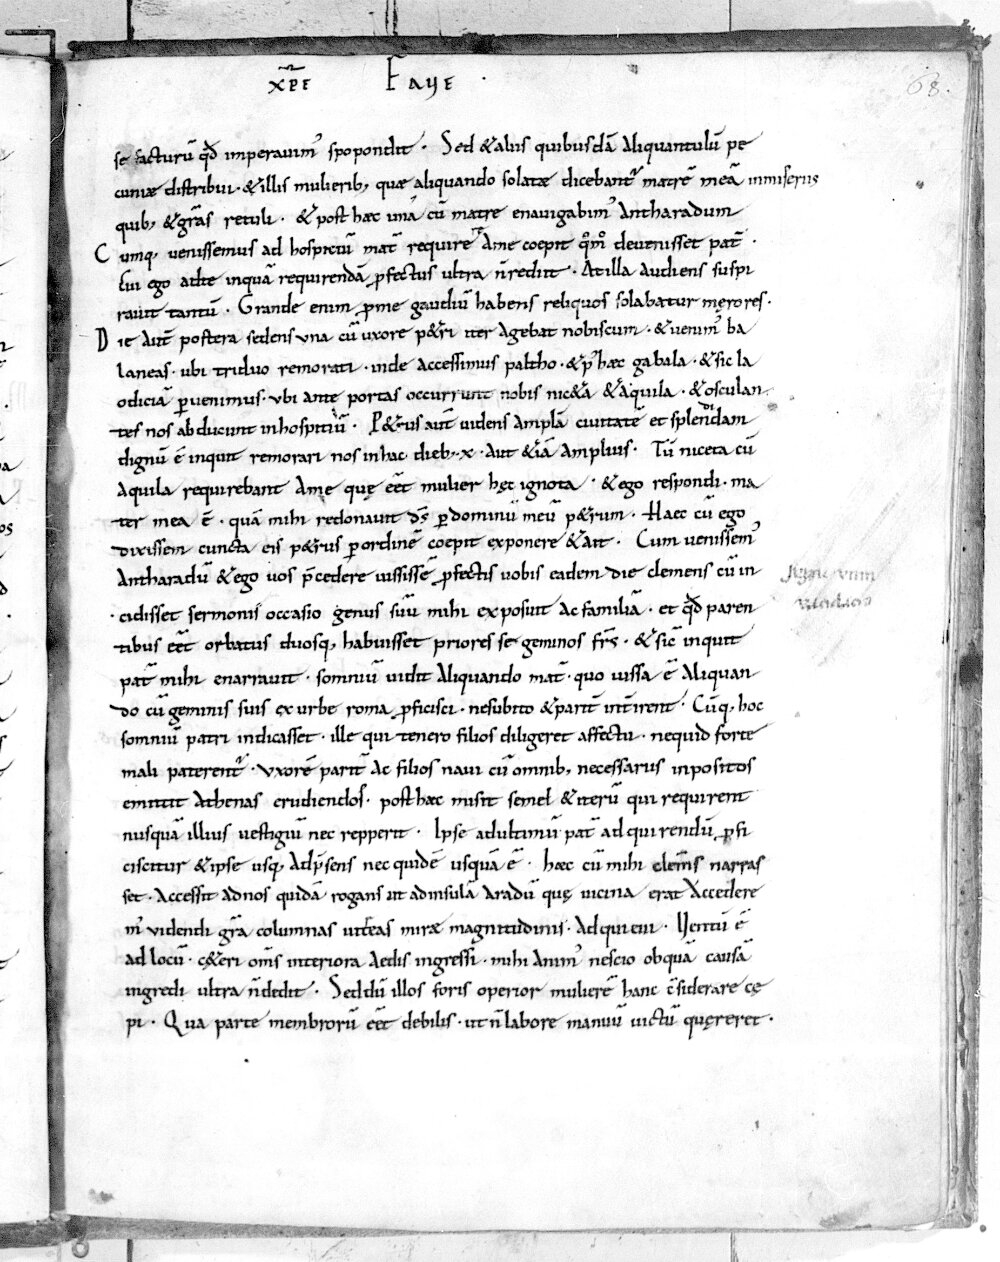 xp̅e Faue ·
68.
se facturū qđ imperauim᾽ spopondit · Sed & aliis quibusdā aliquantulū pe
cuniæ distribui · & illis mulierib; quæ aliquando solatæ dicebant᾽ matrē meā in miseriis
quib; & gr̄as retuli · & post hæc unā cū matre enauigabim᾽ Antharadum
Cumq; venissemus ad hospiciū mat̄ requirere Ame coepit qōm̄ deuenisset pat̄ ·
Cui ego ad te inquā requirendā ꝓfectus ultra n̄ rediit · At illa audiens suspi
rauit tantū · Grande enim pro me gaudiū habens reliquos solabatur męrores ·
Die aut̄ postera sedens una cū uxore p&ri iter agebat nobiscum · & venim᾽ ba
laneas · ubi triduo remorati · inde accessimus paltho · & p᾽ hæc gabala · & sic la
odiciā ꝑuenimus · vbi ante portas occurrunt nobis nic&a & aquila · & osculan
tes nos abducunt in hospitiū · P&rus aut̄ videns amplā ciuitatē et splendidam
dignū ē inquit remorari nos in hac dieb; · x · aut &iā amplius · Tū niceta cū
aquila requirebant Ame quę eēt mulier hęc ignota · & ego respondi · ma
ter mea ē · quā mihi redonauit dš ꝑ dominū meū p&rum · Haec cū ego
dixissem cuncta eis p&rus ꝑ ordinē coepit exponere & ait · Cum venissem᾽
Antharadū & ego uos p̄cedere iussissē ꝓfectis uobis eadem die clemens cū in
cidisset sermonis occasio genus suū mihi exposuit ac familiā · et qđ paren
tibus eēt orbatus duosq; habuisset priores se geminos fr̄s · & sic᾽ inquit
pat̄ mihi enarrauit · somniū vidit aliquando mat̄ · quo iussa ē aliquan
do cū geminis suis ex urbe roma ꝓficisci · ne subito & parit̄ int̄irent · Cūq; hoc
somniū patri indicasset · ille qui tenero filios diligeret affectu · nequid forte
mali paterent᾽ · vxorē parit̄ ac filios naui cū omnib; necessariis inpositos
emittit Athenas erudiendos · post hæc misit semel & iterū qui requirent
nusquā illius uestigiū nec repperit · Ipse ad ultimū pat̄ ad quirendū ꝓfi
ciscitur & ipse usq; ad p̄sens nec quidē usquā ē · hæc cū mihi clem̄s narras
set · Accessit ad nos quidā rogans ut ad insulā Aradū quę uicina erat Accedere
m᾽ videndi gr̄a columnas uitreas miræ magnitudinis · Adquieui · Uentū ē
ad locū · c&eri om̄s interiora Aedis ingressi · mihi anim᾽ nescio ob quā causā
ingredi ultra n̄ dedit · Sed dū illos foris operior mulierē hanc c̄siderare cę
pi · Qua parte membrorū eēt debilis · ut n̄ labore manuū uictū quęreret ·